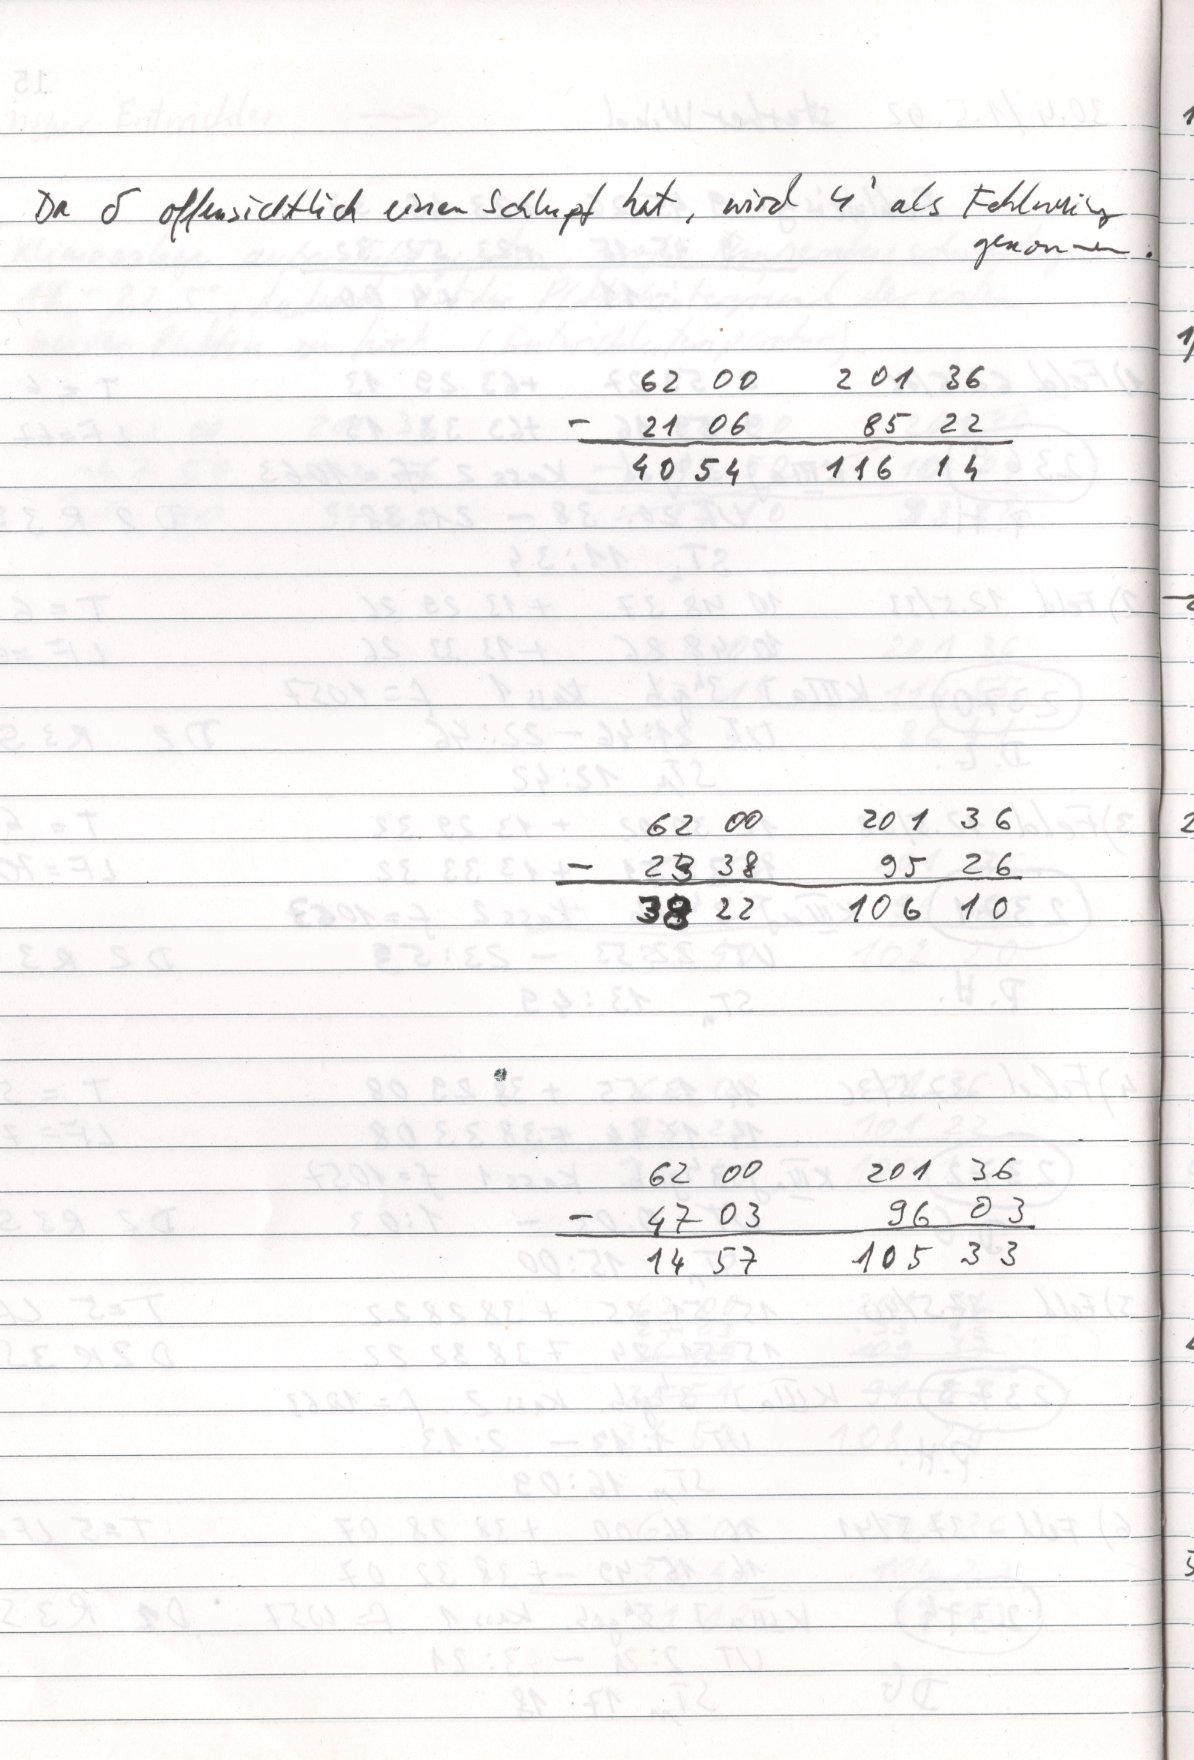 Da δ offensichtlich einen Schlupf hat, wird 4' als Fehlweisung
genommen.
62 00 201 36
- 21 06 85 22
40 54 116 14
62 00 201 36
- 23 38 95 26
38 22 106 10
62 00 201 36
- 47 03 96 03
14 57 105 33